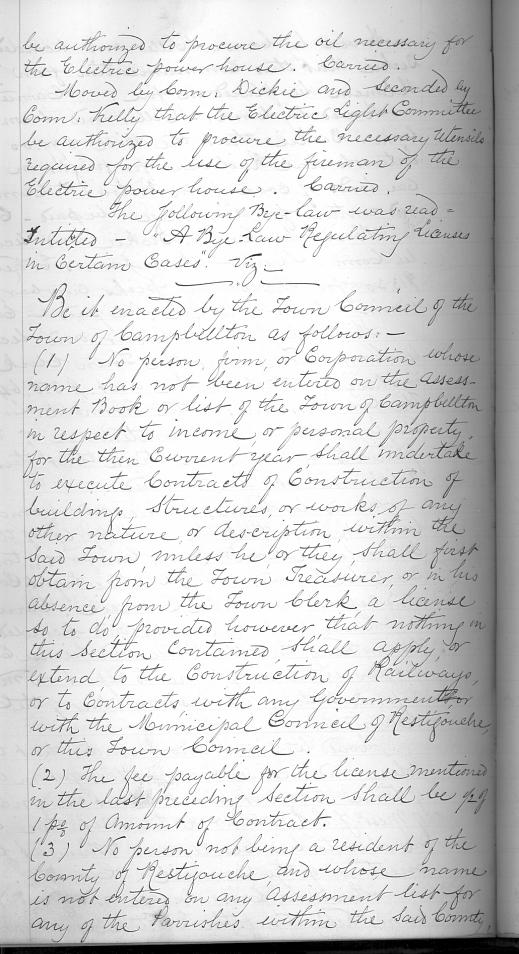 be authorized to procure the oil necessary for
the Electric power house. Carried.
Moved by Coun. Dickie and Seconded by
Coun. Kelly that the Electric Light Committee
be authorized to procure the necessary Utensils
required for the use of the fireman of the
Electric power house. Carried.
The following Bye-law was read -
Intitled - "A Bye-Law Regulating Licenses
in Certain Cases". Viz -
Be it enacted by the Town Council of the
Town of Campbellton as follows: -
(1) No person, firm, or Corporation whose
name has not been entered on the Assess-
ment Book or list of the Town of Campbellton
in respect to income, or personal property,
for the then Current year shall undertake
to execute Contracts of Construction of
buildings, Structures, or works, of any
other nature, or description, within the
Said Town unless he, or they, shall first
obtain from the Town Treasurer, or in his
absence, from the Town Clerk, a license
so to do, provided however that nothing in
this Section Contained Shall apply, or
extend to the Construction of Railways,
or to Contracts with any Government or
with the Municipal Council of Restigouche,
or this Town Council.
(2) The fee payable for the license mentioned
in the last preceding Section Shall be
of Amount of Contract.
(3) No person not being a resident of the
County of Restigouche and whose name
is not entered on any Assessment list for
any of the Parrishes within the Said County,